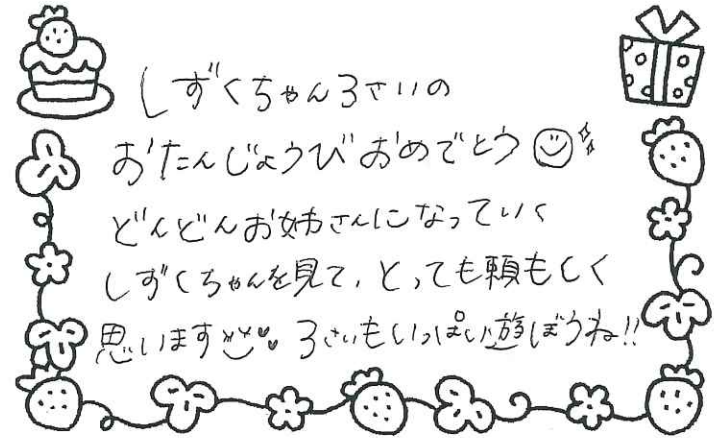 しずくちゃん3さいの
おたんじょうびおめでとう
どんどんお姉さんになっていく
しずくちゃんを見て、とっても頼もしく
思います 3さいもいっぱい遊ぼうね!!